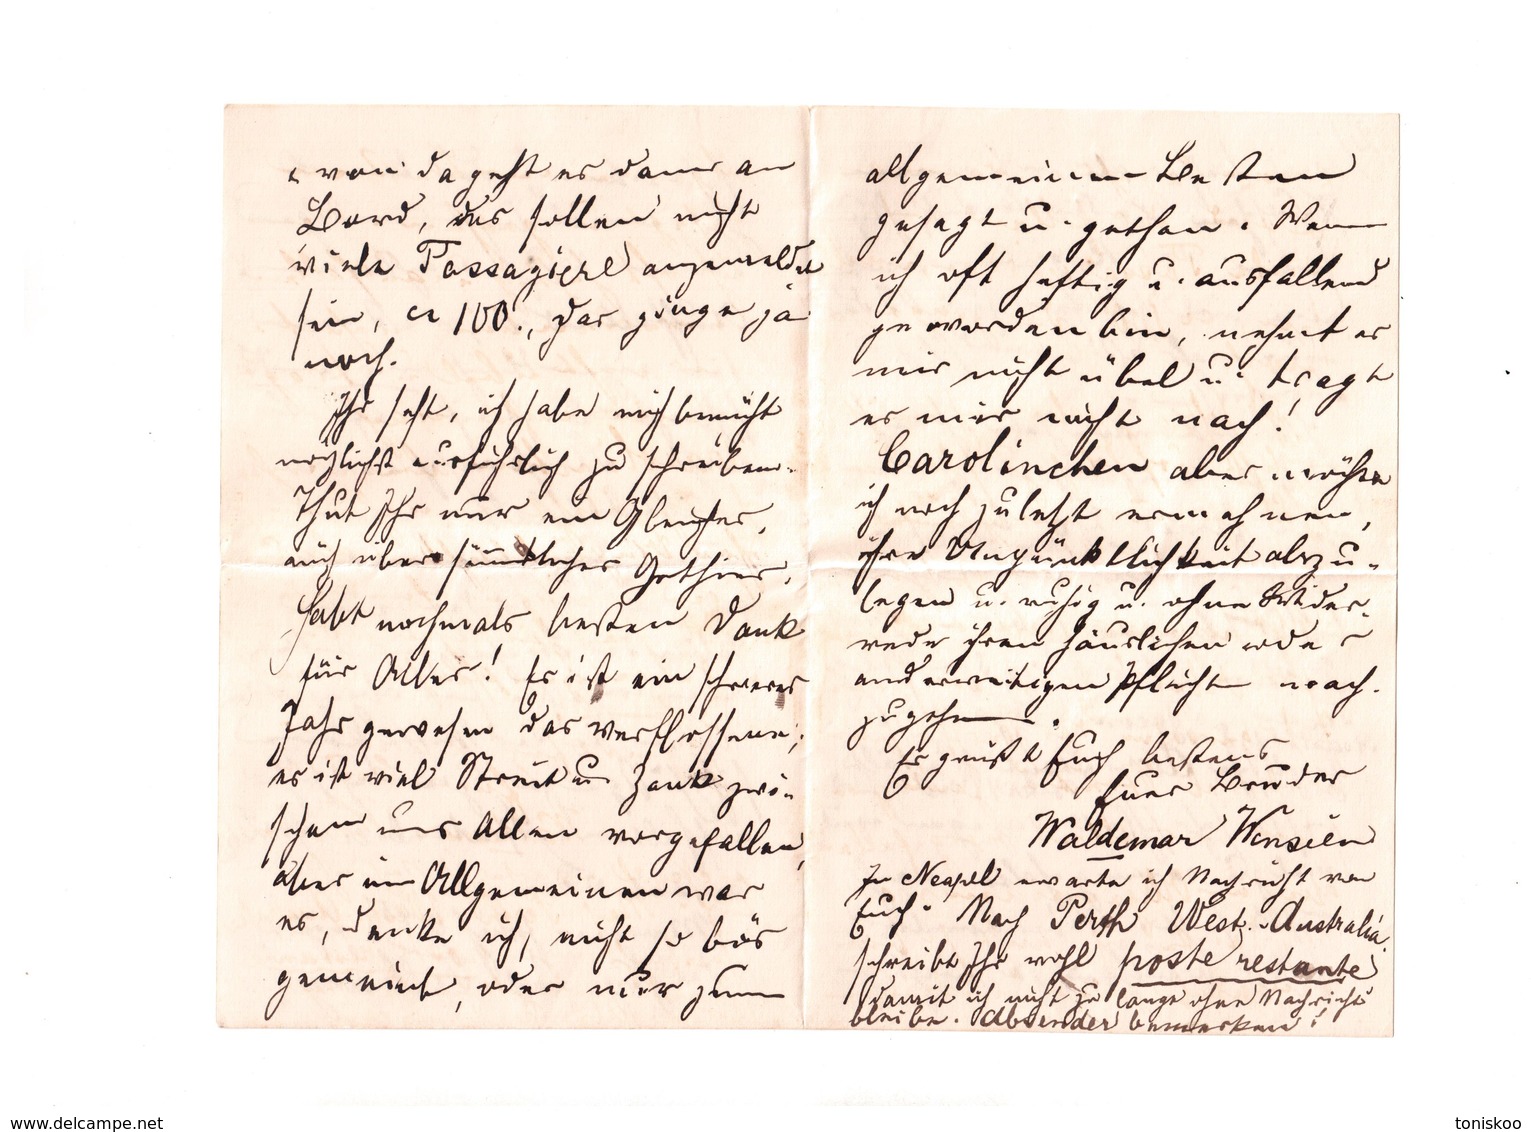 von da geht es dann an
Bord, es sollen nicht
viele Passagiere angemeldet
sein, ca 100., das ginge ja
noch.
Ihr seht, ich habe mich bemüht
möglichst ausführlich zu schreiben.
Thut Ihr nur ein Gleiches,
auch über sämmtliches Gethier.
Habt nochmals besten Dank
für Alles! Es ist ein schweres
Jahr gewesen das verflossene;
es ist viel Streit u Zank zwi-
schen uns Allen vorgefallen,
aber im Allgemeinen war
es, denke ich, nicht so bös
gemeint, oder nur zum
allgemeinen Besten
gesagt u. gethan. Wenn
ich oft heftig u. ausfallend
geworden bin, nehmt es
mir nicht übel u. tragt
es mir nicht nach!
Carolinchen aber möchte
ich noch zuletzt ermahnen,
ihre Unpünktlichkeit abzu-
legen u. ruhig u. ohne Wider-
rede ihren häuslichen oder
anderweitigen Pflichten nach-
zugehen.
Es grüßt Euch bestens
Euer Bruder
Waldemar
In Neapel erwarte ich Nachricht von
Euch. Nach Perth West-Australia
schreibt Ihr wohl poste restante
damit ich nicht zu lange ohne Nachricht
bleibe. Absender bemerken!
www.delcampe.net
toniskoo